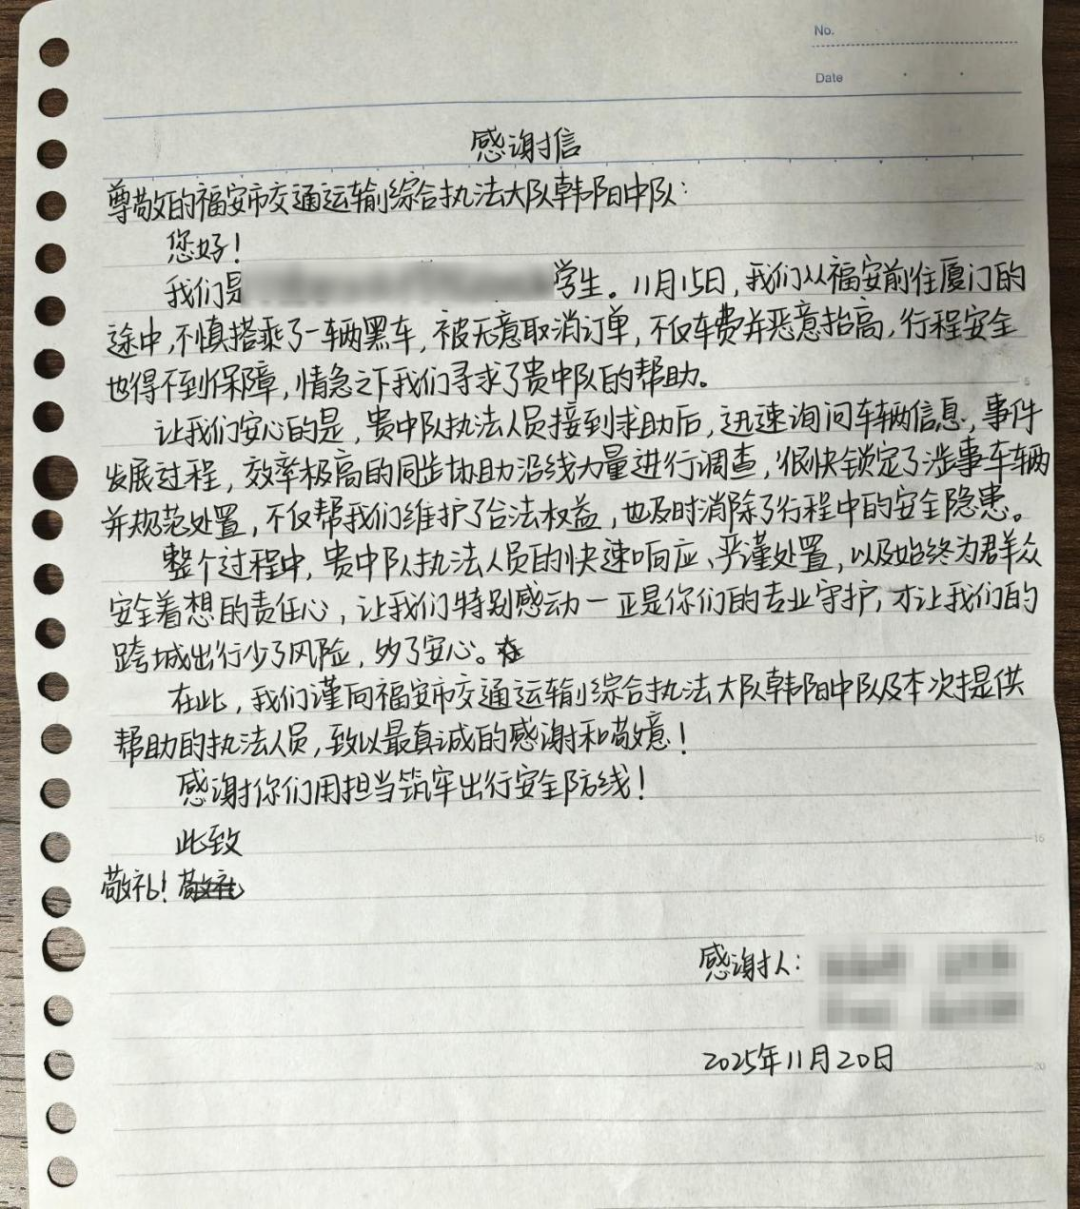 No.
Date
感谢信
尊敬的福安市交通运输综合执法大队韩阳中队:
您好!
我们是 学生。11月15日,我们从福安前往厦门的
途中,不慎搭乘了一辆黑车,被无意取消订单,不仅车费并恶意抬高,行程安全
也得不到保障,情急之下我们寻求了贵中队的帮助。
让我们安心的是,贵中队执法人员接到求助后,迅速询问车辆信息,事件
发展过程,效率极高的同步协助沿线力量进行调查,很快锁定了涉事车辆
并规范处置,不仅帮我们维护了合法权益,也及时消除了行程中的安全隐患。
整个过程中,贵中队执法人员的快速响应、严谨处置,以及始终为群众
安全着想的责任心,让我们特别感动一正是你们的专业守护,才让我们的
跨城出行少了风险,多了安心。
在此,我们谨向福安市交通运输综合执法大队韩阳中队及本次提供
帮助的执法人员,致以最真诚的感谢和敬意!
感谢你们用担当筑牢出行安全防线!
15
此致
敬礼!敬礼
感谢人:
2025年11月20日
20